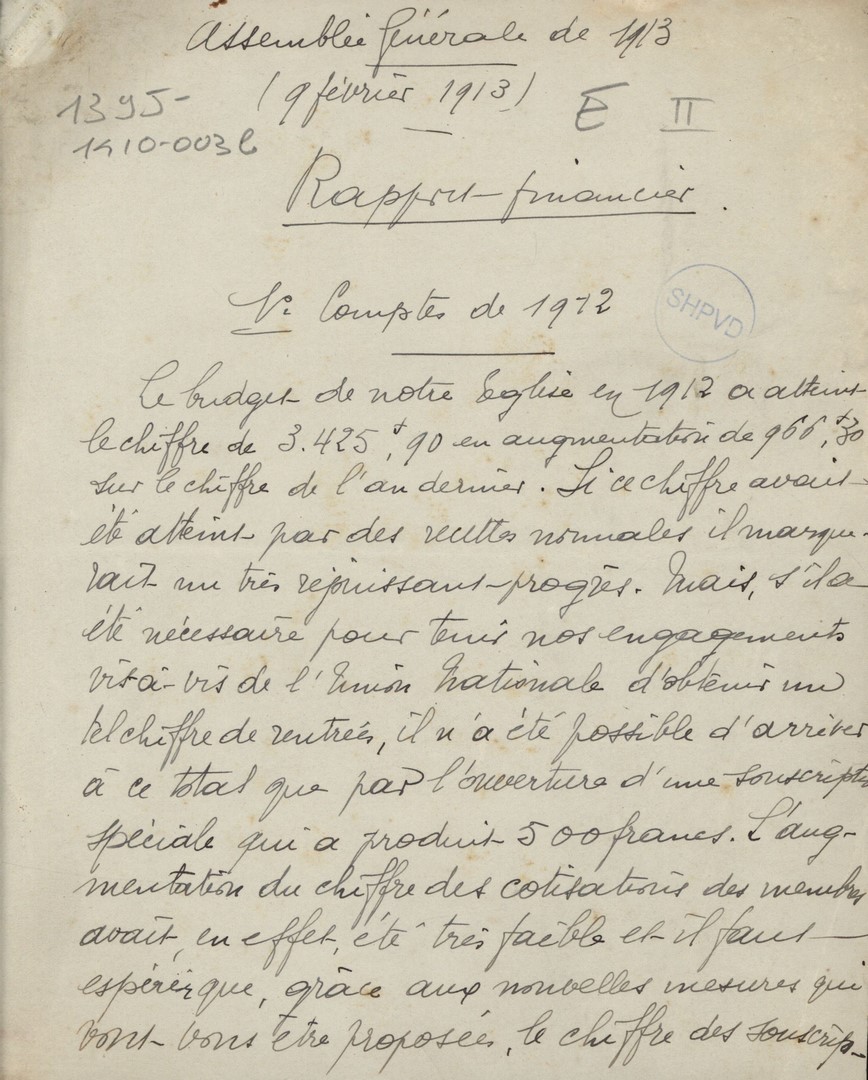 Assemblée Générale de 1913
(9 février 1913)
1395-
1410-003b
E II
Rapport financier.
Comptes de 1912
SHPVD
Le budget de notre Eglise en 1912 a atteint
le chiffre de 3.425f,90 en augmentation de 966f,30
sur le chiffre de l'an dernier. Si ce chiffre avait
été atteint par des recettes normales il marque-
rait un très réjouissant progrès. Mais, s'il a
été nécessaire pour tenir nos engagements
vis-à-vis de l'Union Nationale d'obtenir un
tel chiffre de rentrées, il n'a été possible d'arriver
à ce total que par l'ouverture d'une souscription
spéciale qui a produit 500 francs. L'aug-
mentation du chiffre des cotisations des membres
avait, en effet, été très faible et il faut
espérer que, grâce aux nouvelles mesures qui
vont vous être proposées, le chiffre des souscrip-